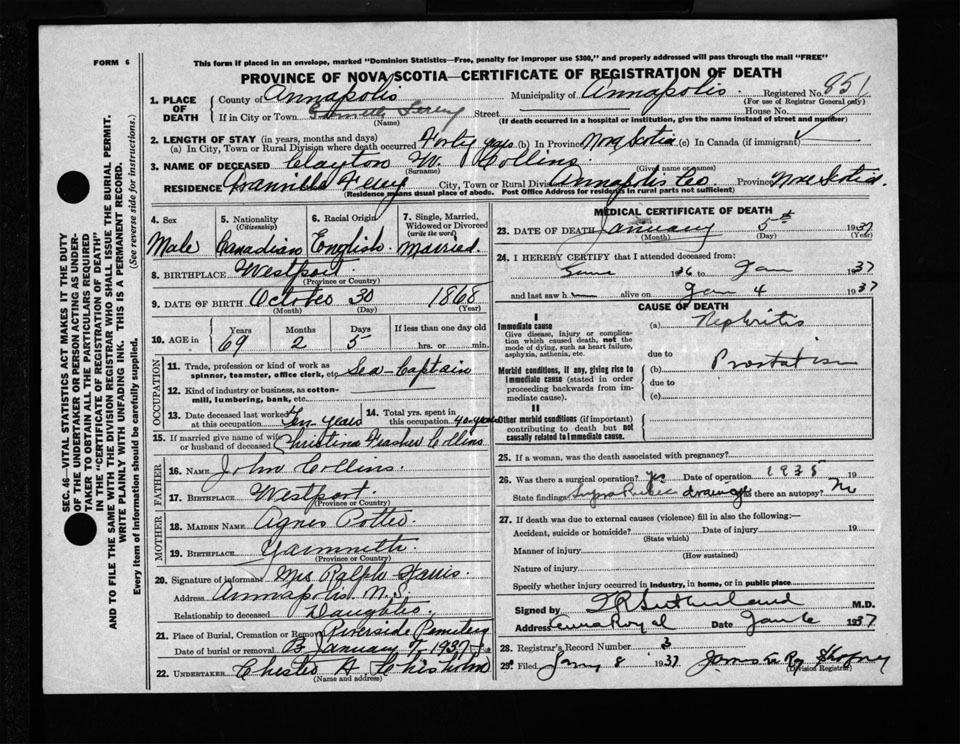 FORM 6
This form if placed in an envelope, marked "Dominion Statistics—Free, penalty for improper use $300," and properly addressed will pass through the mail "FREE"
PROVINCE OF NOVA SCOTIA—CERTIFICATE OF REGISTRATION OF DEATH
1. PLACE OF DEATH
County of Annapolis Municipality of Annapolis. Registered No. 851
(For use of Registrar General only)
If in City or Town Ferry Street House No.
(Name) (If death occurred in a hospital or institution, give the name instead of street and number)
2. LENGTH OF STAY (in years, months and days)
(a) In City, Town or Rural Division where death occurred Forty years (b) In Province Nova Scotia (c) In Canada (if immigrant)
3. NAME OF DECEASED Clayton W. Collins.
(Surname) (Given name or names)
RESIDENCE Granville Ferry City, Town or Rural Division Annapolis Co Province Nova Scotia
(Residence means usual place of abode. Post Office Address for residents in rural parts not sufficient)
4. Sex
Male
5. Nationality
(Citizenship)
Canadian
6. Racial Origin
English.
7. Single, Married, Widowed or Divorced
(write the word)
Married.
8. BIRTHPLACE Westport.
(Province or Country)
9. DATE OF BIRTH October 30 1868
(Month) (Day) (Year)
10. AGE in
Years Months Days If less than one day old
69 2 5 hrs. or min.
OCCUPATION
11. Trade, profession or kind of work as spinner, teamster, office clerk, etc. Sea-Captain
12. Kind of industry or business, as cotton-mill, lumbering, bank, etc.
13. Date deceased last worked at this occupation Ten years
14. Total yrs. spent in this occupation 40 years
15. If married give name of wife or husband of deceased Christina Collins
FATHER
16. NAME John Collins.
17. BIRTHPLACE Westport.
(Province or Country)
MOTHER
18. MAIDEN NAME Agnes Potter
19. BIRTHPLACE Yarmouth.
(Province or Country)
20. Signature of informant Mrs Ralph Harris.
Address Annapolis N.S.
Relationship to deceased Daughter.
21. Place of Burial, Cremation or Removal Riverside Cemetery
Date of burial or removal January 7, 1937
22. UNDERTAKER Chester A. Chisholm
(Name and address)
MEDICAL CERTIFICATE OF DEATH
23. DATE OF DEATH January 5th 1937
(Month) (Day) (Year)
24. I HEREBY CERTIFY that I attended deceased from:
June 1936 to Jan 1937
and last saw h alive on Jan 4 1937
CAUSE OF DEATH
I
Immediate cause
Give disease, injury or complication which caused death, not the mode of dying, such as heart failure, asphyxia, asthenia, etc.
(a) Nephritis
due to
Morbid conditions, if any, giving rise to immediate cause (stated in order proceeding backwards from immediate cause).
(b)
due to
(c)
II
Other morbid conditions (if important) contributing to death but not causally related to immediate cause.
25. If a woman, was the death associated with pregnancy?
26. Was there a surgical operation? Yes Date of operation 1935 19
State findings Supra Pubic drainage Was there an autopsy? No
27. If death was due to external causes (violence) fill in also the following:—
Accident, suicide or homicide? Date of injury 19
(State which)
Manner of injury
(How sustained)
Nature of injury
Specify whether injury occurred in industry, in home, or in public place
Signed by Sutherland M.D.
Address Royal Date Jan 6 1937
28. Registrar's Record Number 3
29. Filed Jany 8 1937 James
(Division Registrar)
SEC. 46—VITAL STATISTICS ACT MAKES IT THE DUTY
OF THE UNDERTAKER OR PERSON ACTING AS UNDER-
TAKER TO OBTAIN ALL THE PARTICULARS REQUIRED
IN THE "CERTIFICATE OF REGISTRATION OF DEATH"
AND TO FILE THE SAME WITH THE DIVISION REGISTRAR WHO SHALL ISSUE THE BURIAL PERMIT.
WRITE PLAINLY WITH UNFADING INK. THIS IS A PERMANENT RECORD.
Every item of Information should be carefully supplied. (See reverse side for instructions.)